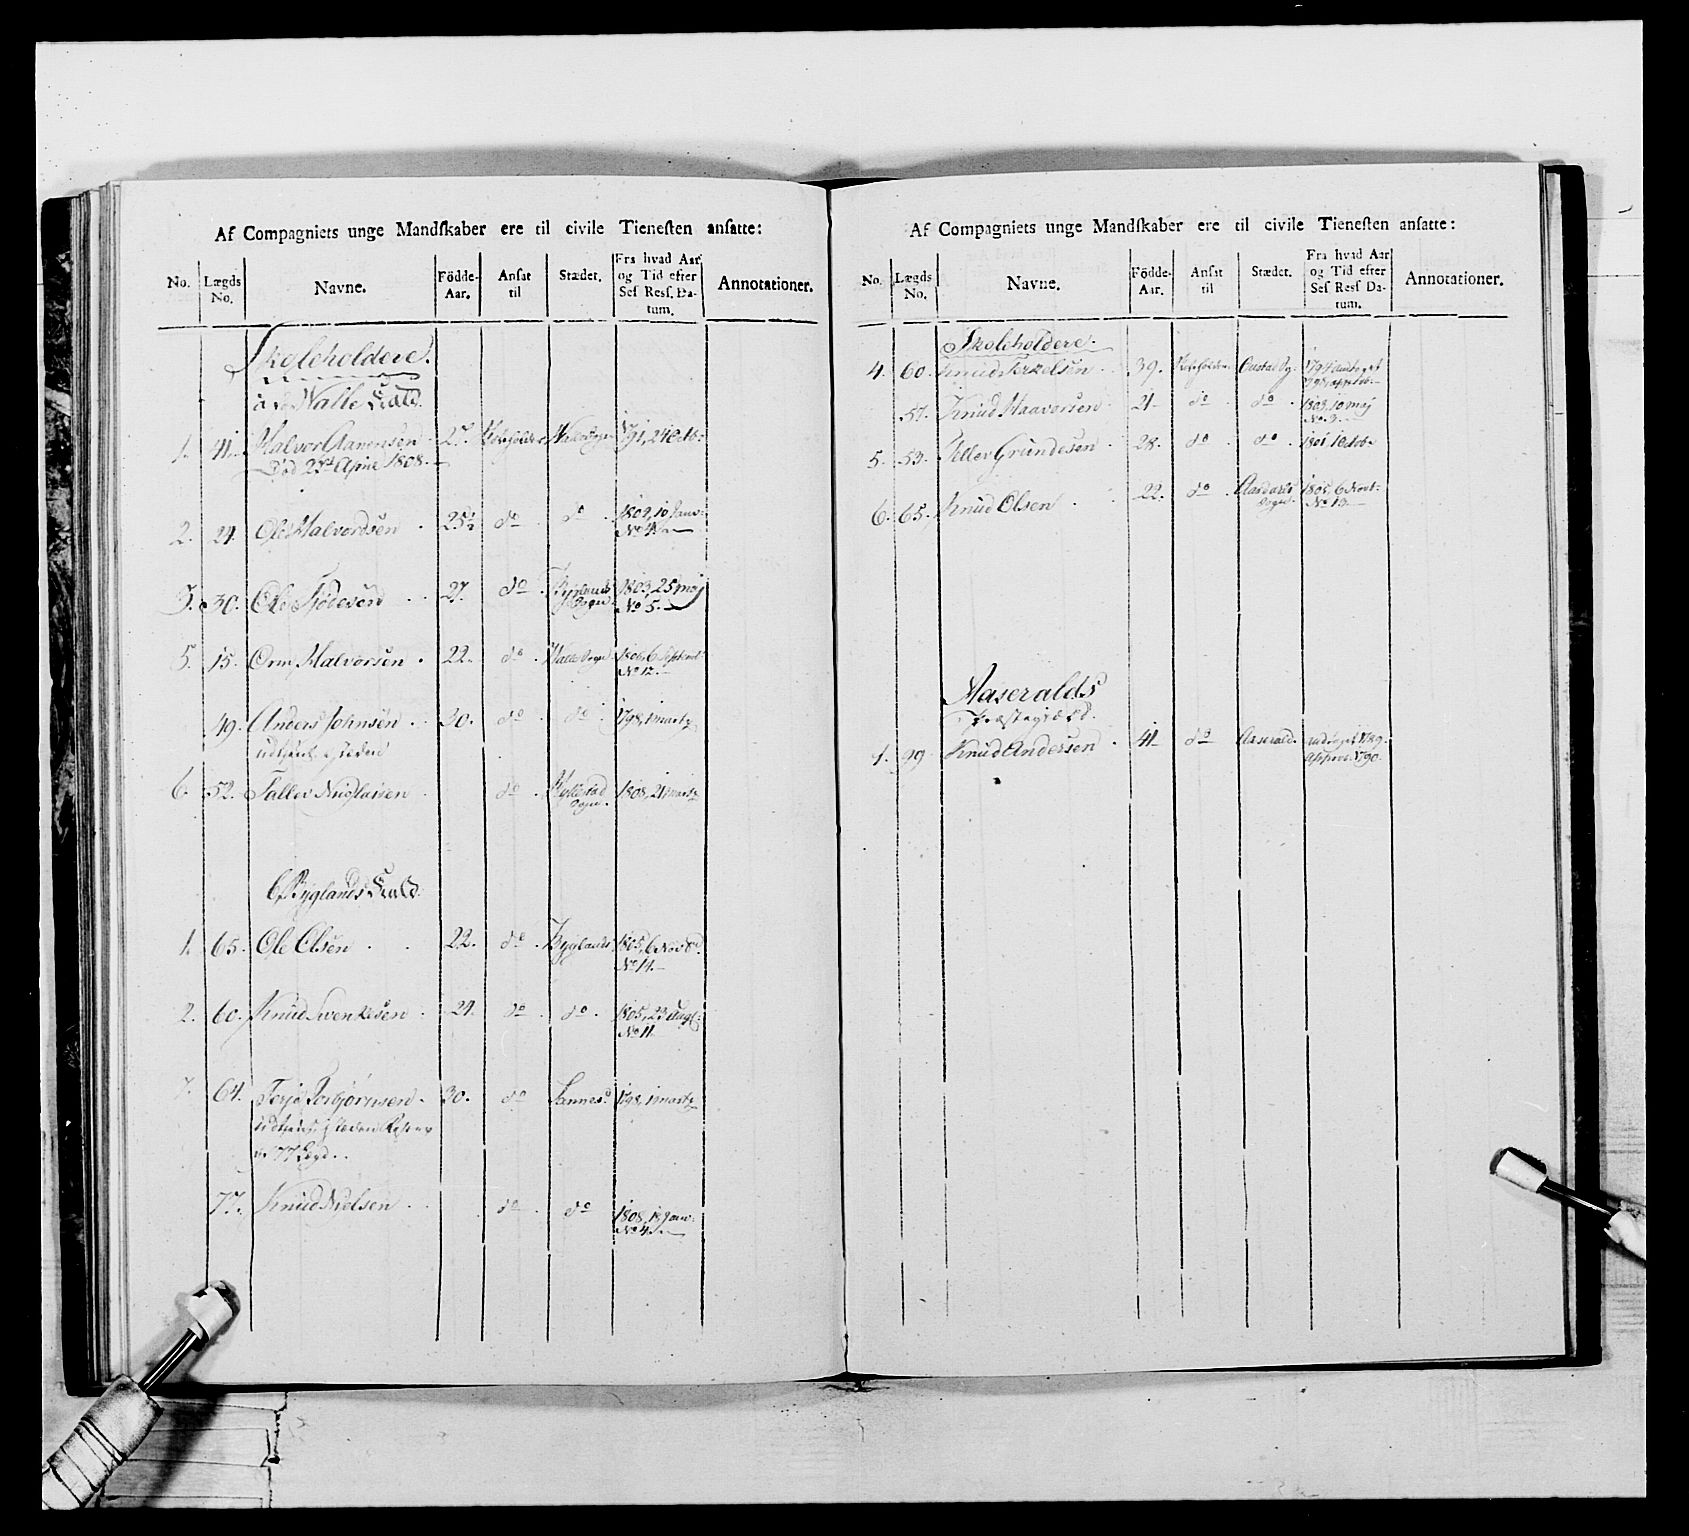 Af Compagniets unge Mandſkaber ere til civile Tieneſten anſatte:
No. Lægds No. Navne. Födde-Aar. Anſat til Stædet. Fra hvad Aar og Tid efter Seſ Reſſ. Da-tum. Annotationer.
Skoleholdere.
Walle Giæld.
1. 41. Halvor Aavensen 27. Walle Sogn 1791, 24 Octb:
Död 23de April 1808.
2. 24. Ole Halvordsen 25½ do do 1809, 10 Janv:
No 4.
3. 30. Ole Tjødesen 27. do Byglands Sogn 1803, 25 Maj
No 5.
5. 15. Orm Halvorsen 22. do Walle Sogn 1806, 6 Septemb:
No 12.
49. Anders Johnsen 30. do do 1798, 1 Martz
udtient i steden
6. 52. Tallev Niuglaisen do Hyllestad Sogn. 1808, 21 Martz
Byglands Giæld.
1. 65. Ole Olsen 22. do Byglands 1805, 6 Novb.
No 14.
2. 60. Knud Svenkesen 24. do do 1805, 23 Augs:
No 11.
7. 64. Terje Torbjörnsen 30. do Sannes 1798, 1 Martz
udtient i steden
77 Legd.
77. Knud Nielsen do do 1808, 18 Janv:
No 4.
Af Compagniets unge Mandſkaber ere til civile Tieneſten anſatte:
No. Lægds No. Navne. Födde-Aar. Anſat til Stædet. Fra hvad Aar og Tid efter Seſ Reſſ Da-tum. Annotationer.
Skoleholdere.
4. 60. Knud Terkelsen 39. 1794
57. Knud Haavorsen 21. do do 1803, 10 Maj
No 3.
5. 53. Tellev Gundesen 28. do do 1801 1 Octob.
6. 65. Knud Olsen 22. do Sogn 1805, 6 Novb:
No 13.
Aaseralds
Præstegiæld.
1. 99. Knud Andersen 41 do Aaserald. 1789.
Approb. 1790.